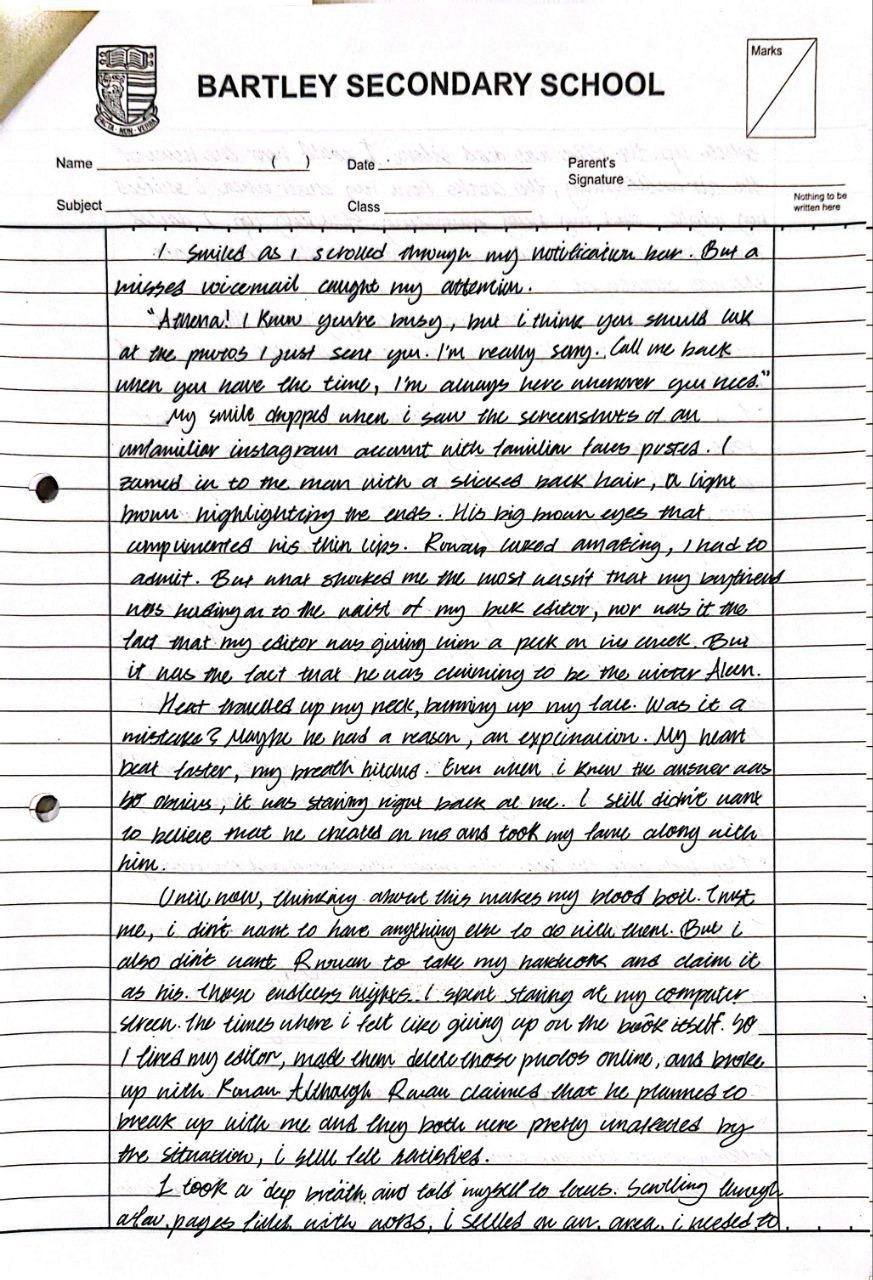 BARTLEY SECONDARY SCHOOL
Marks
FACTA · NON · VERBA
Name ( ) Date Parent's
Signature
Subject Class Nothing to be
written here
I smiled as i scrolled through my notification bar. But a
missed voicemail caught my attention.
"Athena! I know you're busy, but i think you should look
at the photos I just sent you. I'm really sorry. Call me back
when you have the time, I'm always here whenever you need."
My smile dropped when i saw the screenshots of an
unfamiliar instagram account with familiar faces posted. I
zoomed in to the man with a slicked back hair, a light
brown highlighting the ends. His big brown eyes that
complimented his thin lips. Rowan looked amazing, I had to
admit. But what shocked me the most wasn't that my boyfriend
was holding on to the waist of my book editor, nor was it the
fact that my editor was giving him a peck on his cheek. But
it was the fact that he was claiming to be the writer
Heat travelled up my neck, burning up my face. Was it a
mistake? Maybe he had a reason, an explanation. My heart
beat faster, my breath hitched. Even when i knew the answer was
so obvious, it was staring right back at me. I still didn't want
to believe that he cheated on me and took my fame along with
him.
Until now, thinking about this makes my blood boil. Trust
me, i din't want to have anything else to do with them. But i
also din't want Rowan to take my hardwork and claim it
as his. Those endless nights I spent staring at my computer
screen. the times where i felt like giving up on the book itself. So
I fired my editor, made them delete those photos online, and broke
up with Rowan Although Rowan claimed that he planned to
break up with me and they both were pretty unaffected by
the situation, i still felt satisfied.
I took a deep breath and told myself to focus. Scrolling through
a few pages filled with words, i settled on an area i needed to